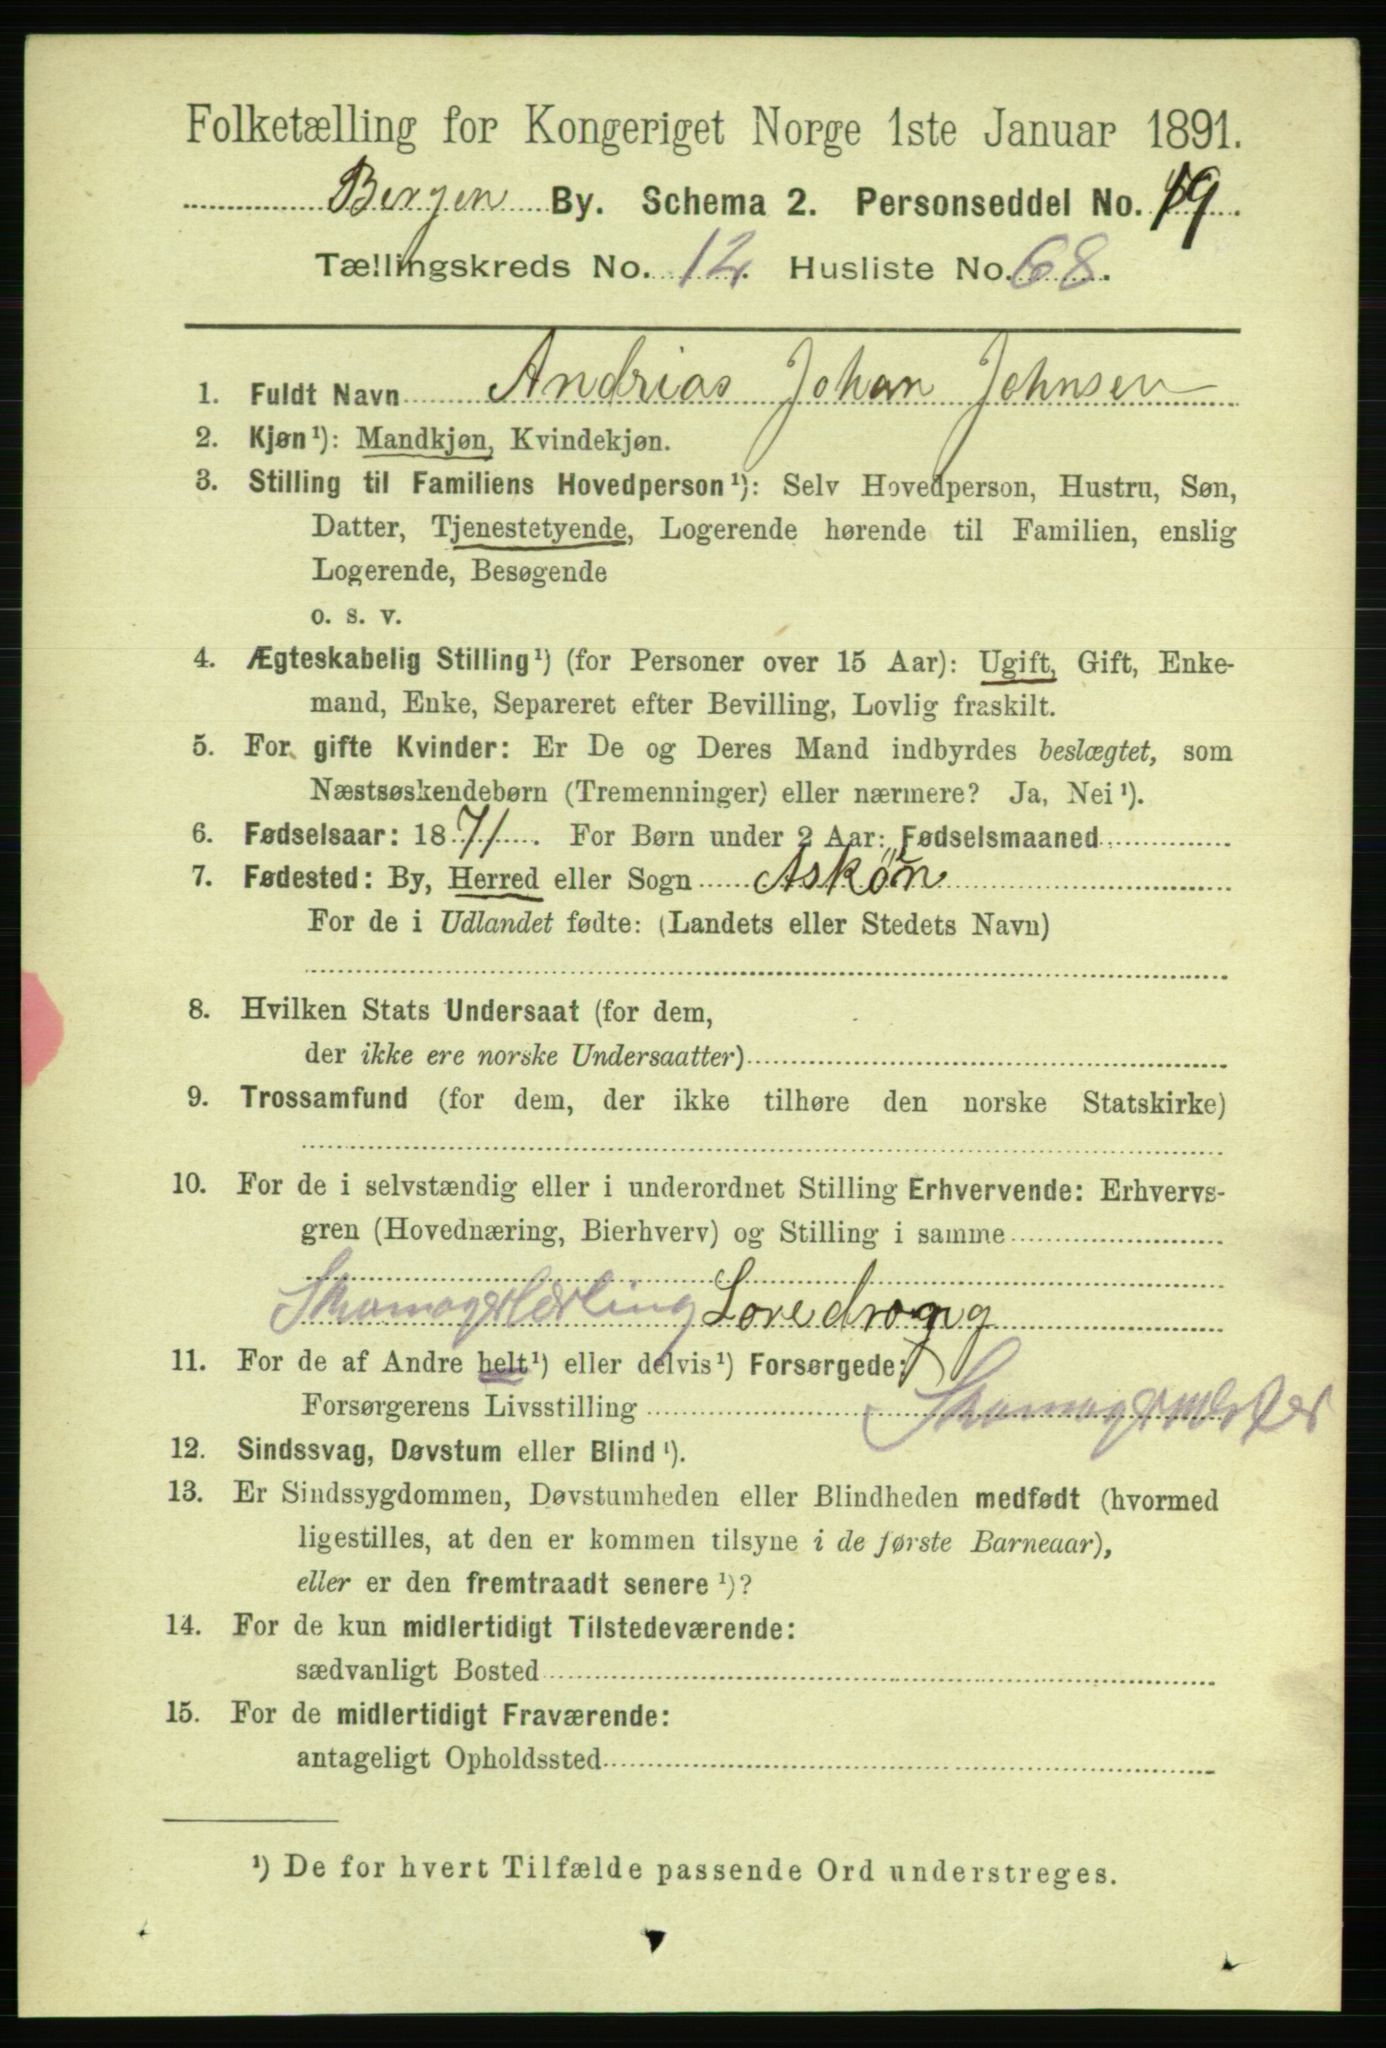 Folketælling for Kongeriget Norge 1ste Januar 1891.
Bergen By. Schema 2. Personseddel No. 19.
Tællingskreds No. 12. Husliste No. 68.
1. Fuldt Navn Andrias Johan Johnsen
2. Kjøn¹): Mandkjøn, Kvindekjøn.
3. Stilling til Familiens Hovedperson¹): Selv Hovedperson, Hustru, Søn,
Datter, Tjenestetyende, Logerende hørende til Familien, enslig
Logerende, Besøgende
o. s. v.
4. Ægteskabelig Stilling¹) (for Personer over 15 Aar): Ugift, Gift, Enke-
mand, Enke, Separeret efter Bevilling, Lovlig fraskilt.
5. For gifte Kvinder: Er De og Deres Mand indbyrdes beslægtet, som
Næstsøskendebørn (Tremenninger) eller nærmere? Ja, Nei¹).
6. Fødselsaar: 1871. For Børn under 2 Aar: Fødselsmaaned
7. Fødested: By, Herred eller Sogn Askøn
For de i Udlandet fødte: (Landets eller Stedets Navn)
8. Hvilken Stats Undersaat (for dem,
der ikke ere norske Undersaatter)
9. Trossamfund (for dem, der ikke tilhøre den norske Statskirke)
10. For de i selvstændig eller i underordnet Stilling Erhvervende: Erhvervs-
gren (Hovednæring, Bierhverv) og Stilling i samme
Skomagerlærling
11. For de af Andre helt¹) eller delvis¹) Forsørgede:
Forsørgerens Livsstilling Skomagermester
12. Sindssvag, Døvstum eller Blind¹).
13. Er Sindssygdommen, Døvstumheden eller Blindheden medfødt (hvormed
ligestilles, at den er kommen tilsyne i de første Barneaar),
eller er den fremtraadt senere¹)?
14. For de kun midlertidigt Tilstedeværende:
sædvanligt Bosted
15. For de midlertidigt Fraværende:
antageligt Opholdssted
¹) De for hvert Tilfælde passende Ord understreges.